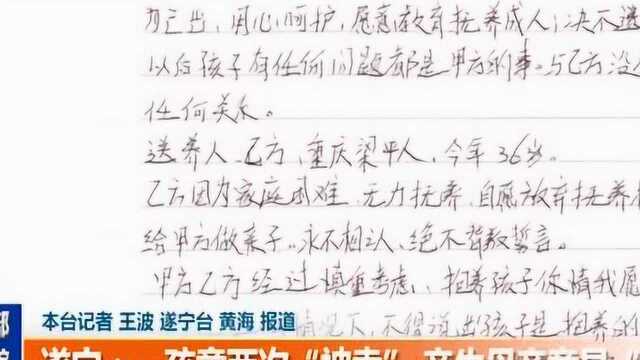 为己出，用心呵护，愿意教育抚养成人；决不送
以后孩子有任何问题都是甲方的事。与乙方没
任何关系。
送养人、乙方，重庆梁平人，今年36岁。
乙方因为家庭困难，无力抚养，自愿放弃抚养
给甲方做亲子。永不相认，绝不背教誓言。
甲方乙方经过慎重考虑，抱养孩子你情我愿
情况下，不得道出孩子是抱养的
本台记者 王波 遂宁台 黄海 报道
遂宁：一孩竟两次“被卖”